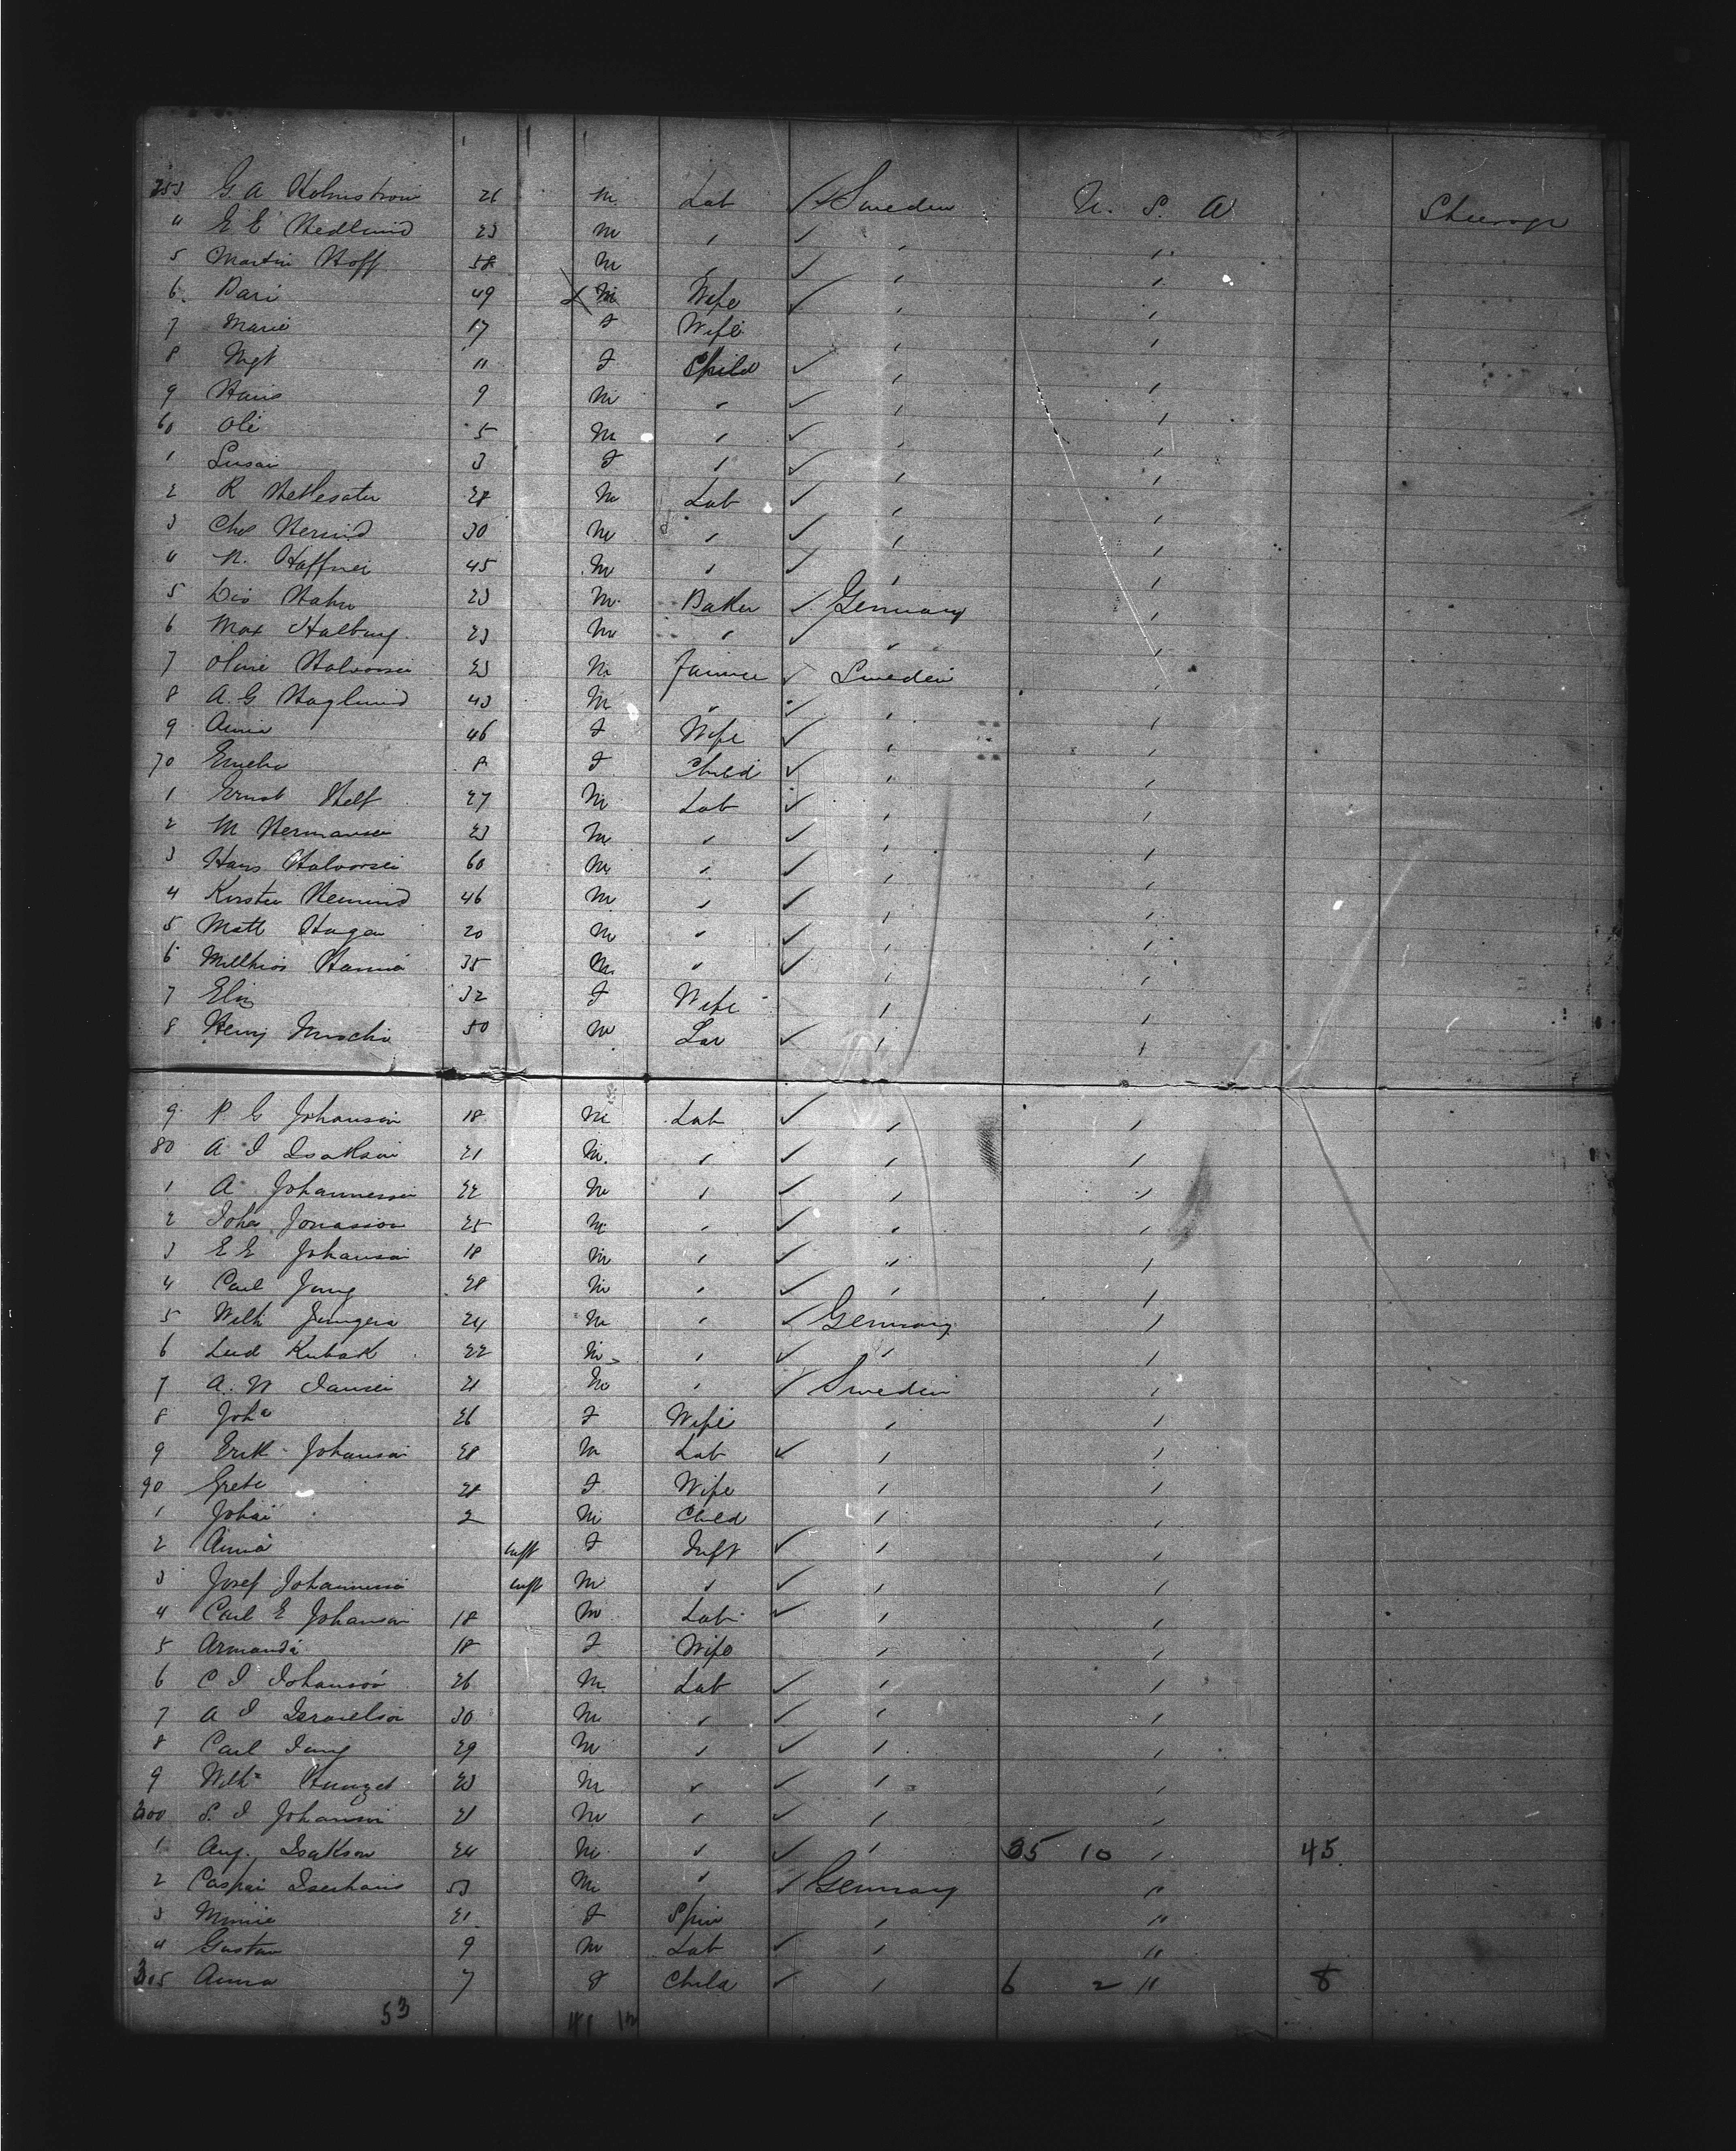 253 G A Holmstrom 26 M Lab ✓ Sweden U. S. A Steerage
4 E E Hedlund 23 M " ✓ " "
5 Martin Hoff 58 M " ✓ " "
6 Bari 49 M Wife ✓ " "
7 Marie 17 F Wife " "
8 Mgt 11 F Child ✓ " "
9 Hans 9 M " ✓ " "
60 Ole 5 M " ✓ " "
1 Susan 3 F " ✓ " "
2 R 28 M Lab ✓ " "
3 Chs 30 M " ✓ " "
4 N. Haffner 45 M " ✓ " "
5 Hahn 23 M Baker ✓ Germany "
6 Max Halburg 23 M " ✓ " "
7 Halvorsen 23 M Farmer ✓ Sweden "
8 A. G Haglund 43 M " ✓ " "
9 Anna 46 F Wife ✓ " "
70 8 F Child ✓ " "
1 Ernst Helf 27 M Lab ✓ " "
2 M Hermansen 23 M " ✓ " "
3 Hans Halvorsen 60 M " ✓ " "
4 Kirsten 46 M " ✓ " "
5 Math Hagen 20 M " ✓ " "
6 Hanna 35 M " ✓ " "
7 Eliz 32 F Wife " "
8 Henry 50 M Lab ✓ " "
9 P G Johanson 18 M Lab ✓ " "
80 A I Isakson 21 M " ✓ " "
1 A Johannessen 22 M " ✓ " "
2 Joha Jonasson 25 M " ✓ " "
3 E E Johanson 18 M " ✓ " "
4 Carl Jung 28 M " ✓ " "
5 Wilh Jungers 24 M " ✓ Germany "
6 Lud Kubak 22 M " ✓ " "
7 A. W Jansen 21 M " ✓ Sweden "
8 Joha 26 F Wife " "
9 Erik Johanson 28 M Lab ✓ " "
90 Grete 28 F Wife " "
1 Johan 2 M Child " "
2 Anna inft F Inft ✓ " "
3 Josef Johannessen inft M " ✓ " "
4 Carl E Johanson 18 M Lab ✓ " "
5 Armanda 18 F Wife " "
6 C I Johanson 26 M Lab ✓ " "
7 A I Israelson 30 M " ✓ " "
8 Carl Jung 29 M " ✓ " "
9 Wilh 23 M " ✓ " "
300 S. I Johanson 21 M " ✓ " "
1 Aug. Isakson 24 M " ✓ " 35 10 " 45
2 Caspar 53 M " ✓ Germany "
3 Minnie 21 F Spin " "
4 Gustav 9 M Lab ✓ " "
305 Anna 7 F Child ✓ " 6 2 " 8
53 41 12